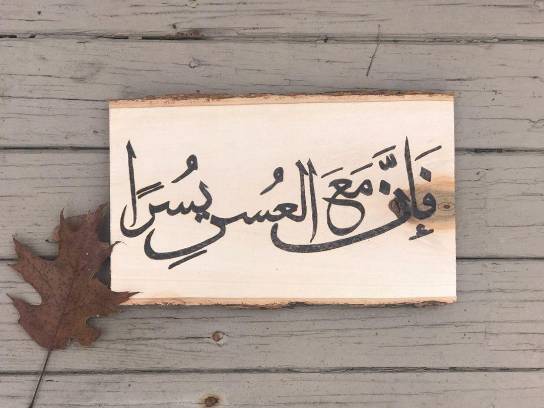 فَإِنَّ مَعَ العُسرِ يُسرًا